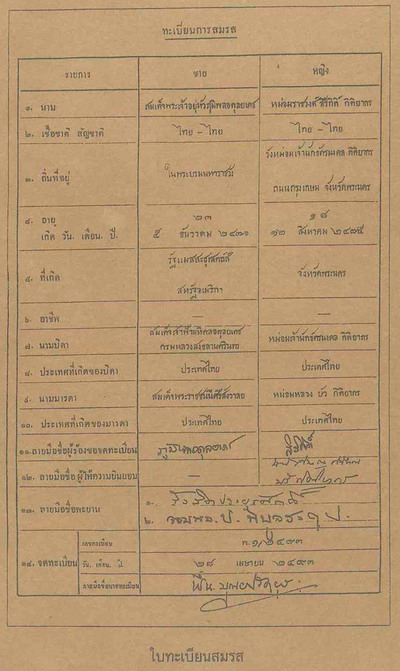 ทะเบียนการสมรส
รายการ ชาย หญิง
๑. นาม สมเด็จพระเจ้าอยู่หัวภูมิพลอดุลยเดช หม่อมราชวงศ์ สิริกิติ์ กิติยากร
๒. เชื้อชาติ สัญชาติ ไทย – ไทย ไทย – ไทย
๓. ถิ่นที่อยู่ ในพระบรมมหาราชวัง วังหม่อมเจ้านักขัตรมงคล กิติยากร
ถนนกรุงเกษม จังหวัดพระนคร
๕. อายุ ๒๓ ๑๘
เกิด วัน. เดือน. ปี. ๕ ธันวาคม ๒๔๗๐ ๑๒ สิงหาคม ๒๔๗๕
๕. ที่เกิด รัฐแมสสาชูเสทส์ จังหวัดพระนคร
สหรัฐอเมริกา
๖. อาชีพ — —
๗. นามบิดา สมเด็จเจ้าฟ้ามหิดลอดุลยเดช หม่อมเจ้านักขัตรมงคล กิติยากร
กรมหลวงสงขลานครินทร์
๘. ประเทศที่เกิดของบิดา ประเทศไทย ประเทศไทย
๙. นามมารดา สมเด็จพระราชชนนีศรีสังวาลย์ หม่อมหลวง บัว กิติยากร
๑๐. ประเทศที่เกิดของมารดา ประเทศไทย ประเทศไทย
๑๑. ลายมือชื่อผู้ร้องขอจดทะเบียน ภูมิพลอดุลยเดช สิริกิติ์
๑๒. ลายมือชื่อ ผู้ให้ความยินยอม —
๑๓. ลายมือชื่อพะยาน ๑.
๒. จอมพล ป. พิบูลสงคราม
๑๔. จดทะเบียน เลขทะเบียน ๒๔๙๓
วัน. เดือน. ปี. ๒๘ เมษายน ๒๔๙๓
ลายมือชื่อนายทะเบียน
ใบทะเบียนสมรส